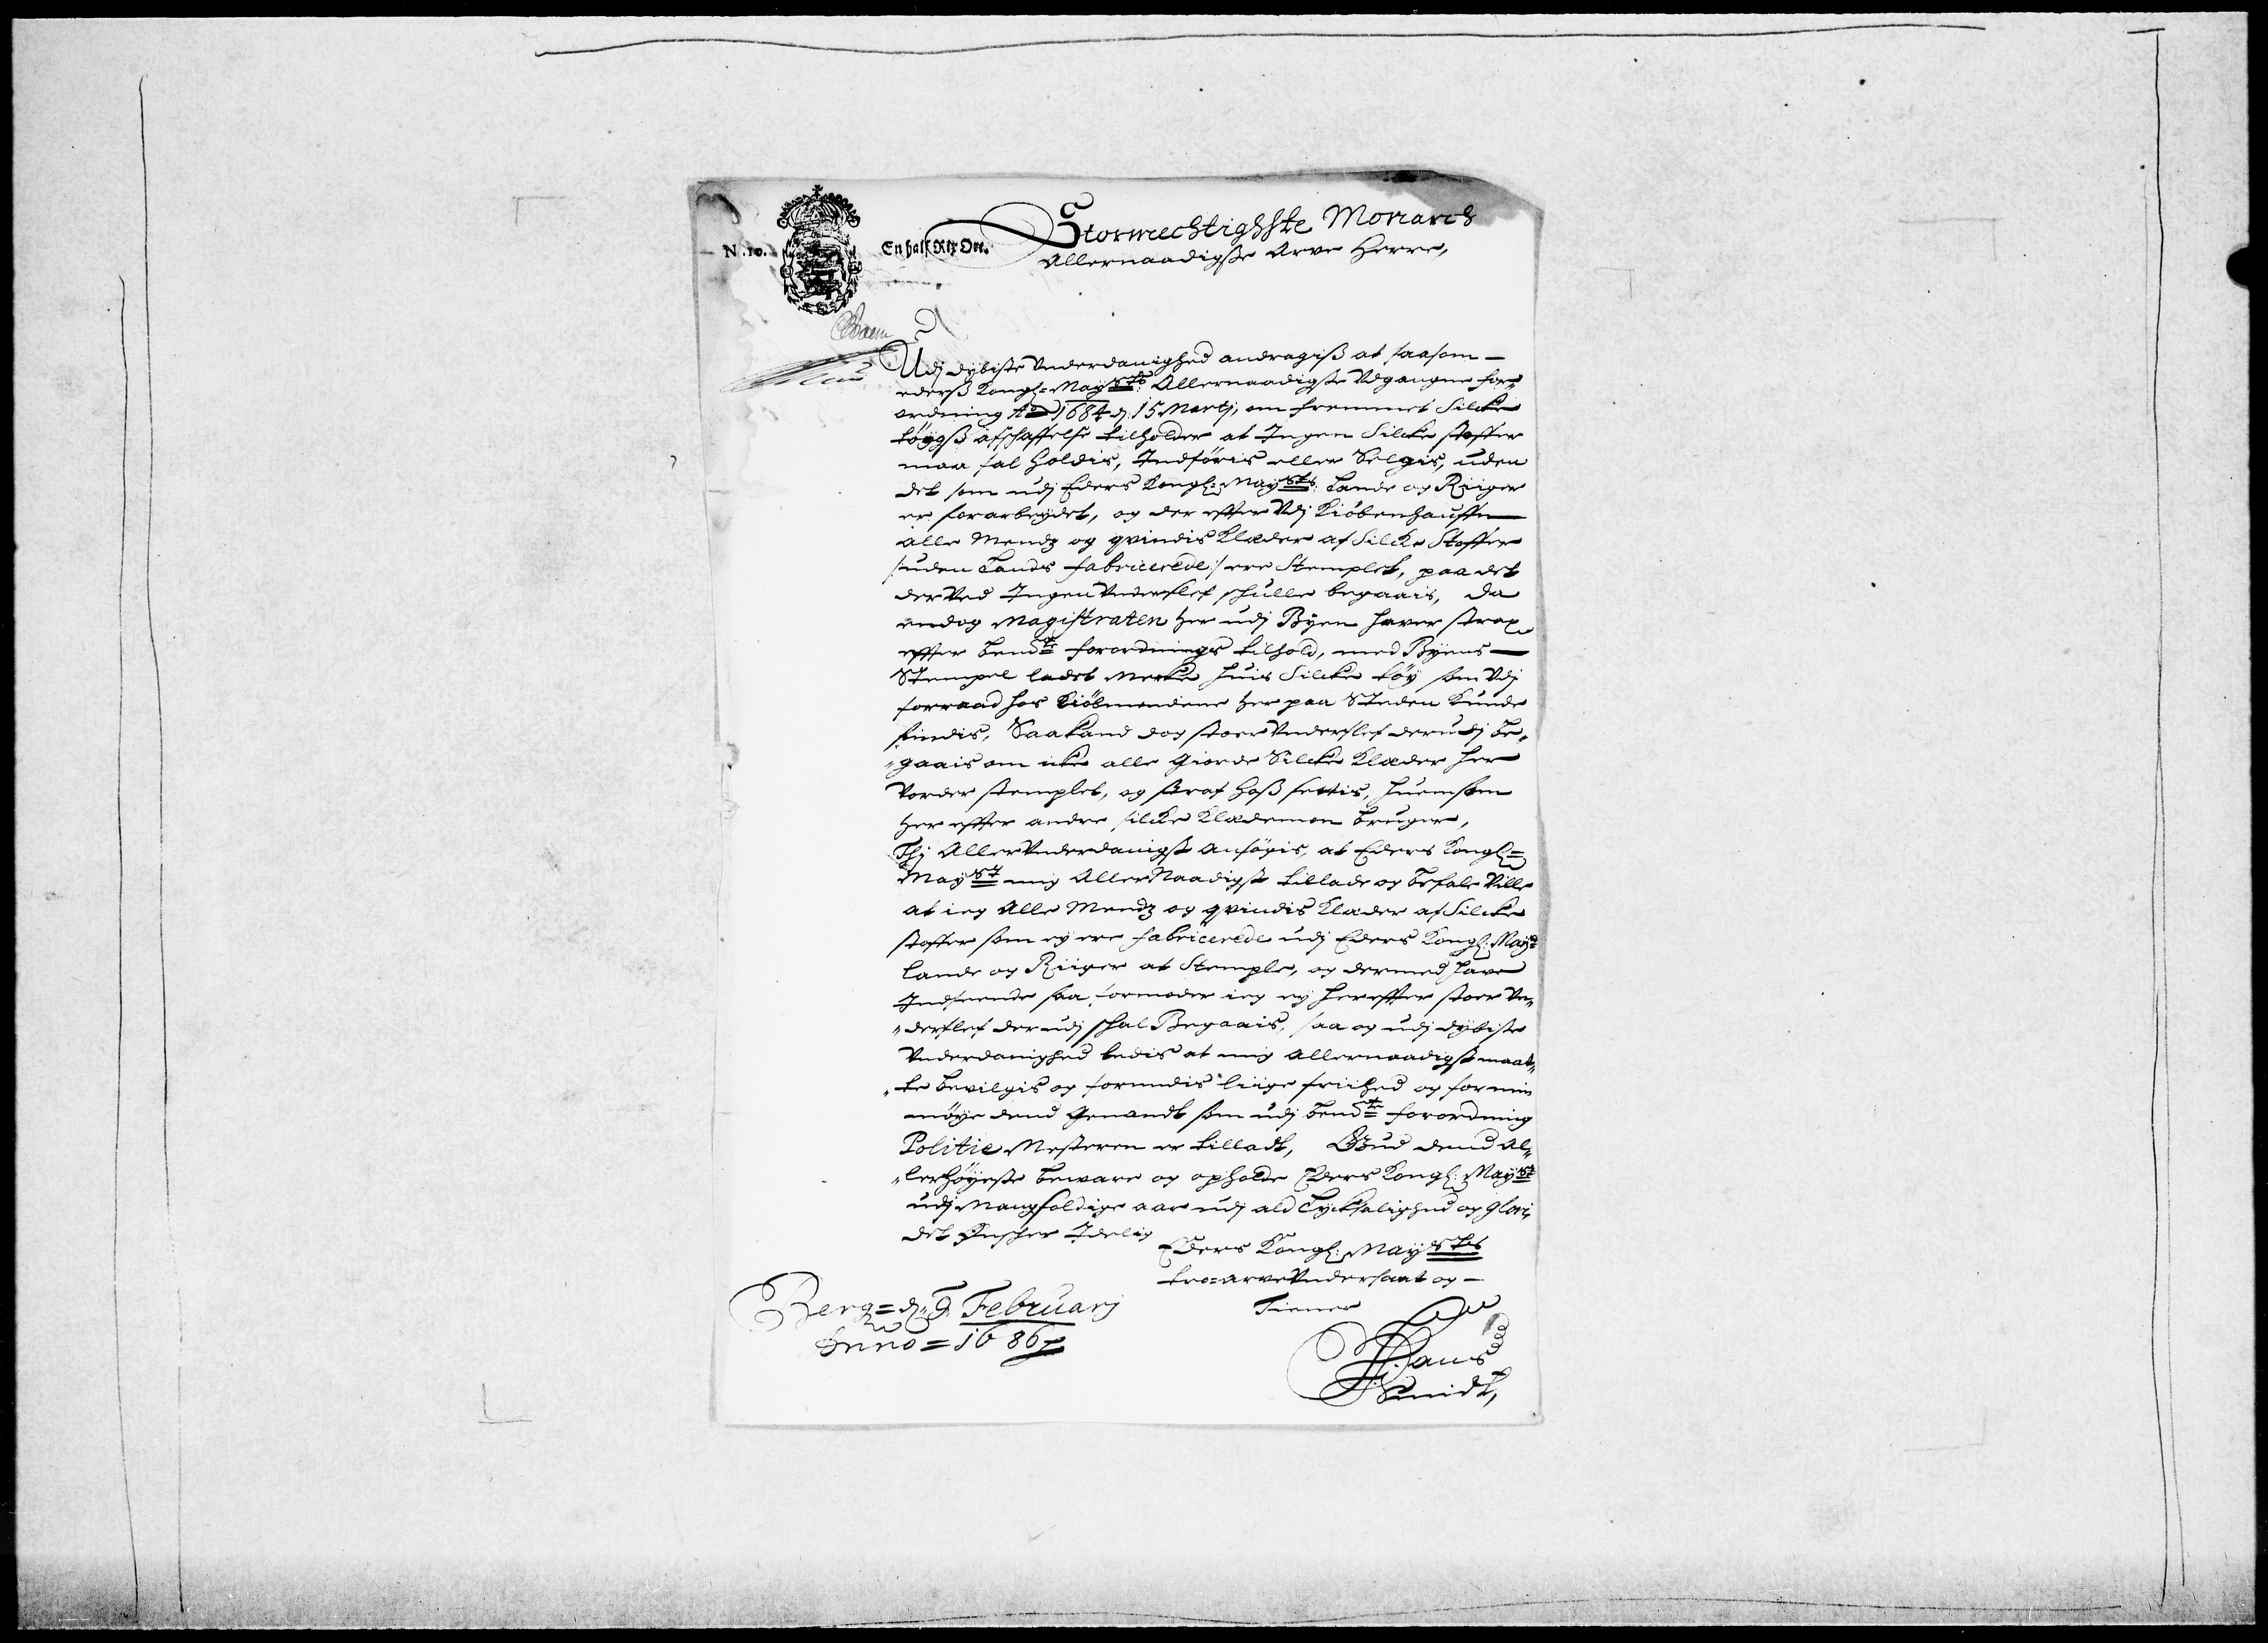 N.10.
En half Rix Ort.
Stormechtighste Monarch
Allernaadigste Arve Herre,
Udj dybiste Underdanighed andragiß at saasom
ederß Kongl: Maysts: Allernaadigste Udgangne for¬
ordning Ao 1684 d. 15 Martj, om fremmet Silcke
töyg̃ß afschaffelse tilholder at Ingen Silcke stoffer
maa fal holdis, Indföris eller Selgis, uden
det som udj Eders Kongl: Maysts: Lande og Riiger
er forarbeydet, og der effter Udj Kiöbenhauffn
alle Mendz og qvindis Klæder af Silcke Stoffer
/:uden Lands fabricerede:/ ere Stemplet, paa det
der Ved Ingen Underslef schulle begaais, da
endog Magistraten her udj Byen haver strax
effter bemte forordnings tilhold, med Byens
Stempel ladet Mercke huis Silcke töy som Udj
forraad hos Kiöbmendene her paa Steden Kunde
findis, Saa kand dog stoer Underslef derudj be¬
gaais om icke alle giorde Silcke Klæder her
Vorder stemplet, og straf hoß settis, huemsom
her effter andre silcke Klædemon bruger,
Thj Aller Underdanigst ansögis, at Eders Kongl:
Mayst mig Aller Naadigst tillade og befale Ville
at ieg Alle Mendz og qvindis Klæder af Silcke
stoffer som ey ere fabricerede udj Eders Kongl: Mayts
Lande og Riiger at Stemple, og dermed have
Indseende saa formoder ieg ey hereffter stoer Un¬
derslef der udj schal Begaais, saa og udj dybiste
Underdanighed bedis at mig allernaadigst maat¬
te bevilgis og forundis liige friihed og for min
möye dend genandt som udj bemte forordning
Politie Mesteren er tilladt, Gud dend Al¬
lerhöyeste beware og opholde Eders Kongl: Mayst
udj Mangfoldige aar udj ald Lycksalighed og glori,
det Ønscher Idelig
Eders Kongl: Maysts
tro=arve Undersaat og
Tiener
Berg= d. 9 Februarj
Anno=1686
Hans
Smidt,